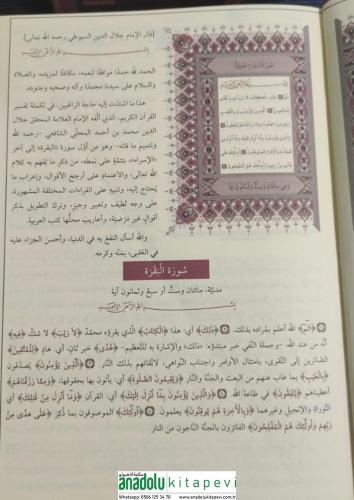 (قال الإمام جلال الدين السيوطي رحمه الله تعالى)
الحمد لله حمدًا موافيًا لنعمه، مكافئًا لمزيده، والصلاة
والسلام على سيدنا محمد وآله وصحبه وجنوده.
هذا ما اشتدّت إليه حاجة الراغبين، في تكملة تفسير
القرآن الكريم، الذي ألّفه الإمام العلامة المحقق جلال
الدين محمد بن أحمد المحلّي الشافعي -رحمه الله
وتتميم ما فاته- وهو من أوّل سورة «البقرة» إلى آخر
«الإسراء»، بتتمّة على نمطه، من ذكر ما يُفهم به كلام
الله تعالى، والاعتماد على أرجح الأقوال، وإعراب ما
يُحتاج إليه، وتنبيه على القراءات المختلفة المشهورة،
على وجه لطيف وتعبير وجيز، وترك التطويل بذكر
أقوال غير مَرْضيّة، وأعاريبَ محلُّها كتب العربية.
والله أسأل النفع به في الدنيا، وأحسنَ الجزاء عليه
في العقبى، بمنّه وكرمه.
سُورَةُ الْبَقَرَةِ
مدنيّة، مائتان وستٌّ أو سبع وثمانون آية
﴿الٓمٓ﴾ الله أعلم بمُراده بذلك. ﴿ذَٰلِكَ﴾ أي: هذا ﴿الْكِتَابُ﴾ الذي يقرؤه محمدٌ ﴿لَا رَيْبَ﴾ لا شك ﴿فِيهِ﴾
أنّه من عند الله، -وجملة النّفي خبر مبتدؤه: «ذلك»، والإشارة به للتّعظيم- ﴿هُدًى﴾ خبر ثانٍ، أي: هادٍ ﴿لِّلْمُتَّقِينَ﴾
الصّائرين إلى التّقوى، بامتثال الأوامر واجتناب النّواهي، لاتّقائهم بذلك النّار. ﴿الَّذِينَ يُؤْمِنُونَ﴾ يصدّقون
﴿بِالْغَيْبِ﴾ بما غاب عنهم من البعث والجنّة والنّار ﴿وَيُقِيمُونَ الصَّلَوٰةَ﴾ أي: يأتون بها بحقوقها، ﴿وَمِمَّا رَزَقْنَاهُمْ﴾
أعطيناهم ﴿يُنفِقُونَ﴾ في طاعة الله. ﴿وَالَّذِينَ يُؤْمِنُونَ بِمَا أُنزِلَ إِلَيْكَ﴾ أي: القرآن ﴿وَمَا أُنزِلَ مِن قَبْلِكَ﴾ أي:
التّوراة والإنجيل وغيرهما ﴿وَبِالْآخِرَةِ هُمْ يُوقِنُونَ﴾ يعلمون. ﴿أُولَٰئِكَ﴾ الموصوفون بما ذُكر ﴿عَلَىٰ هُدًى مِّن
رَّبِّهِمْ وَأُولَٰئِكَ هُمُ الْمُفْلِحُونَ﴾ الفائزون بالجنّة النّاجون من النّار.
anadolukitapevi
Whatsapp: 0506 125 34 78 www.anadolukitapevi.com.tr